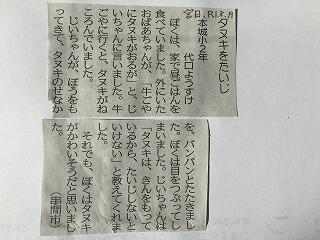 タヌキをたいじ
本城小2年
代口ようすけ
ぼくは、家で昼ごはんを
食べていました。外にいた
おばあちゃんが、「牛ごや
にタヌキがおるが」と、じ
いちゃんに言いました。牛
ごやに行くと、タヌキがね
ころんでいました。
じいちゃんが、ぼうをも
ってきて、タヌキのせなか
を、バンバンとたたきまし
た。ぼくは目をつぶってし
まいました。じいちゃんは
「タヌキは、きんをもって
いるから、たいじしないと
いけない」と教えてくれま
した。
それでも、ぼくはタヌキ
がかわいそうだと思いまし
た。（串間市）